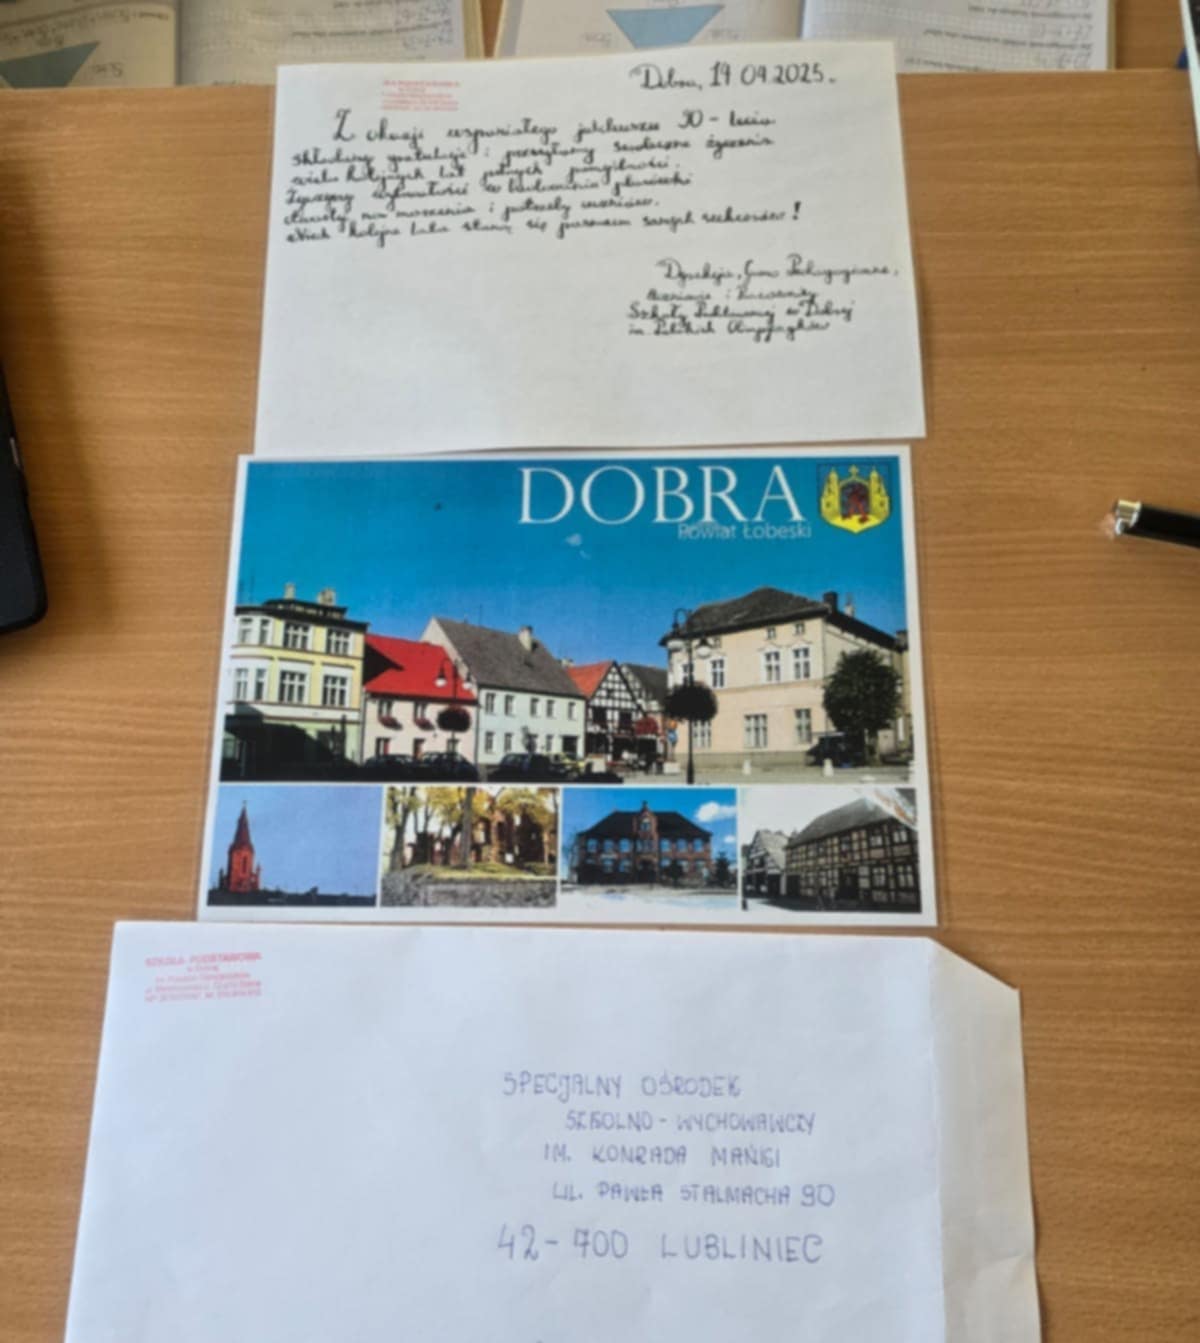 Dobra, 19.09.2025.
Z okazji wspaniałego jubileuszu 30-lecia
składamy gratulacje i przesyłamy serdeczne życzenia
wielu kolejnych lat pełnych pomyślności.
Życzymy wytrwałości w budowaniu placówki
otwartej na marzenia i potrzeby uczniów.
Niech kolejne lata staną się pasmem samych sukcesów!
Dyrekcja, Grono Pedagogiczne,
Uczniowie i Pracownicy
Szkoły Podstawowej w Dobrej
im. Polskich Olimpijczyków
DOBRA
Powiat Łobeski
SZKOŁA PODSTAWOWA
w Dobrej
SPECJALNY OŚRODEK
SZKOLNO-WYCHOWAWCZY
IM. KONRADA MAŃKI
UL. PAWŁA STALMACHA 90
42-700 LUBLINIEC